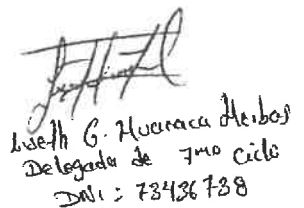 Liveth G. Huaraca Meibos
Delegada de 7mo Ciclo
DNI : 73436738